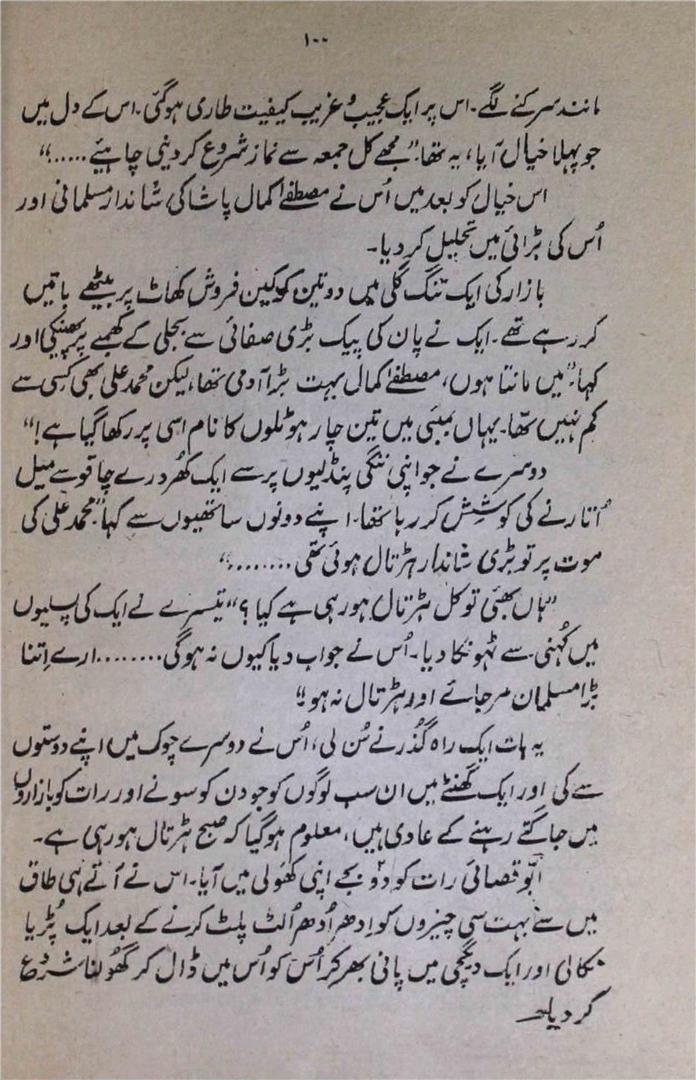 ۱۰۰
مانند سرکنے لگے۔ اس پر ایک عجیب و غریب کیفیت طاری ہوگئی۔ اس کے دل میں
جو پہلا خیال آیا، یہ تھا۔ ”مجھے کل جمعہ سے نماز شروع کر دینی چاہیئے .....“
اس خیال کو بعد میں اُس نے مصطفےٰ کمال پاشا کی شاندار مسلمانی اور
اُس کی بڑائی میں تحلیل کر دیا۔
بازار کی ایک تنگ گلی میں دو تین کوکین فروش کھاٹ پر بیٹھے باتیں
کر رہے تھے۔ ایک نے پان کی پیک بڑی صفائی سے بجلی کے کھمبے پر پھینکی اور
کہا۔ ”میں مانتا ہوں، مصطفےٰ کمال بہت بڑا آدمی تھا، لیکن محمد علی بھی کسی سے
کم نہیں تھا۔ یہاں بمبئی میں تین چار ہوٹلوں کا نام اسی پر رکھا گیا ہے!“
دوسرے نے جو اپنی ننگی پنڈلیوں پر سے ایک کھُردرے چاقو سے میل
اُتارنے کی کوشش کر رہا تھا۔ اپنے دونوں ساتھیوں سے کہا۔ ”محمد علی کی
موت پر تو بڑی شاندار ہڑتال ہوئی تھی ........“
”ہاں بھئی تو کل ہڑتال ہو رہی ہے کیا؟“ تیسرے نے ایک کی پسلیوں
میں کُہنی سے ٹہونکا دیا۔ اُس نے جواب دیا کیوں نہ ہوگی ........ ارے اِتنا
بڑا مسلمان مر جائے اور ہڑتال نہ ہو!“
یہ بات ایک راہ گذر نے سُن لی، اُس نے دوسرے چوک میں اپنے دوستوں
سے کی اور ایک گھنٹے میں ان سب لوگوں کو جو دن کو سونے اور رات کو بازاروں
میں جاگتے رہنے کے عادی ہیں، معلوم ہوگیا کہ صبح ہڑتال ہو رہی ہے۔
ابّو قصائی رات کو دو بجے اپنی کھولی میں آیا۔ اس نے آتے ہی طاق
میں سے بہت سی چیزوں کو اِدھر اُدھر اُلٹ پلٹ کرنے کے بعد ایک پُڑیا
نکالی اور ایک دیگچی میں پانی بھر کر اُس کو اُس میں ڈال کر گھولنا شروع
کر دیا۔